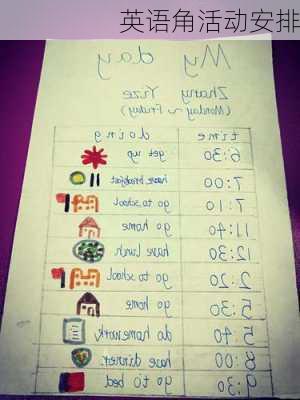 英语角活动安排
My day
Zhang Yize
(Monday ~ Friday)
time doing
6:30 get up
7:00 have breakfast
7:10 go to school
11:40 go home
12:30 have lunch
2:20 go to school
5:30 go home
5:40 do homework
8:00 have dinner
9:30 go to bed